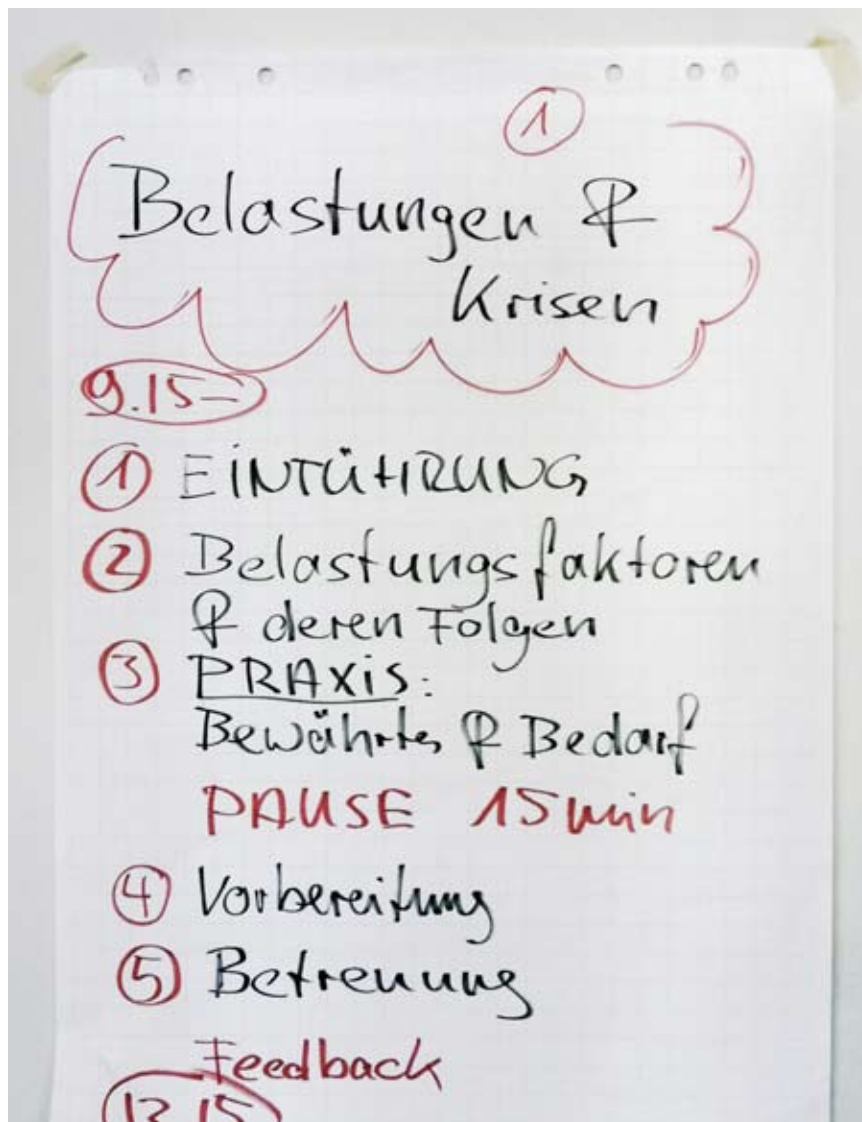 1
Belastungen &
Krisen
9.15–
1 EINFÜHRUNG
2 Belastungsfaktoren
& deren Folgen
3 PRAXIS:
Bewährtes & Bedarf
PAUSE 15 min
4 Vorbereitung
5 Betreuung
Feedback